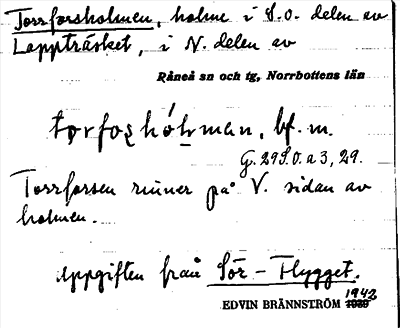 Torrforsholmen, holme i S.O. delen av
Lappträsket, i N. delen av
Råneå sn och tg, Norrbottens län
tǫrfọṣhólman, bf. m.
G. 29 S.O. a 3, 29.
Torrforsen rinner på V. sidan av
holmen.
uppgiften från Sör-Flygget.
1942
EDVIN BRÄNNSTRÖM 1939